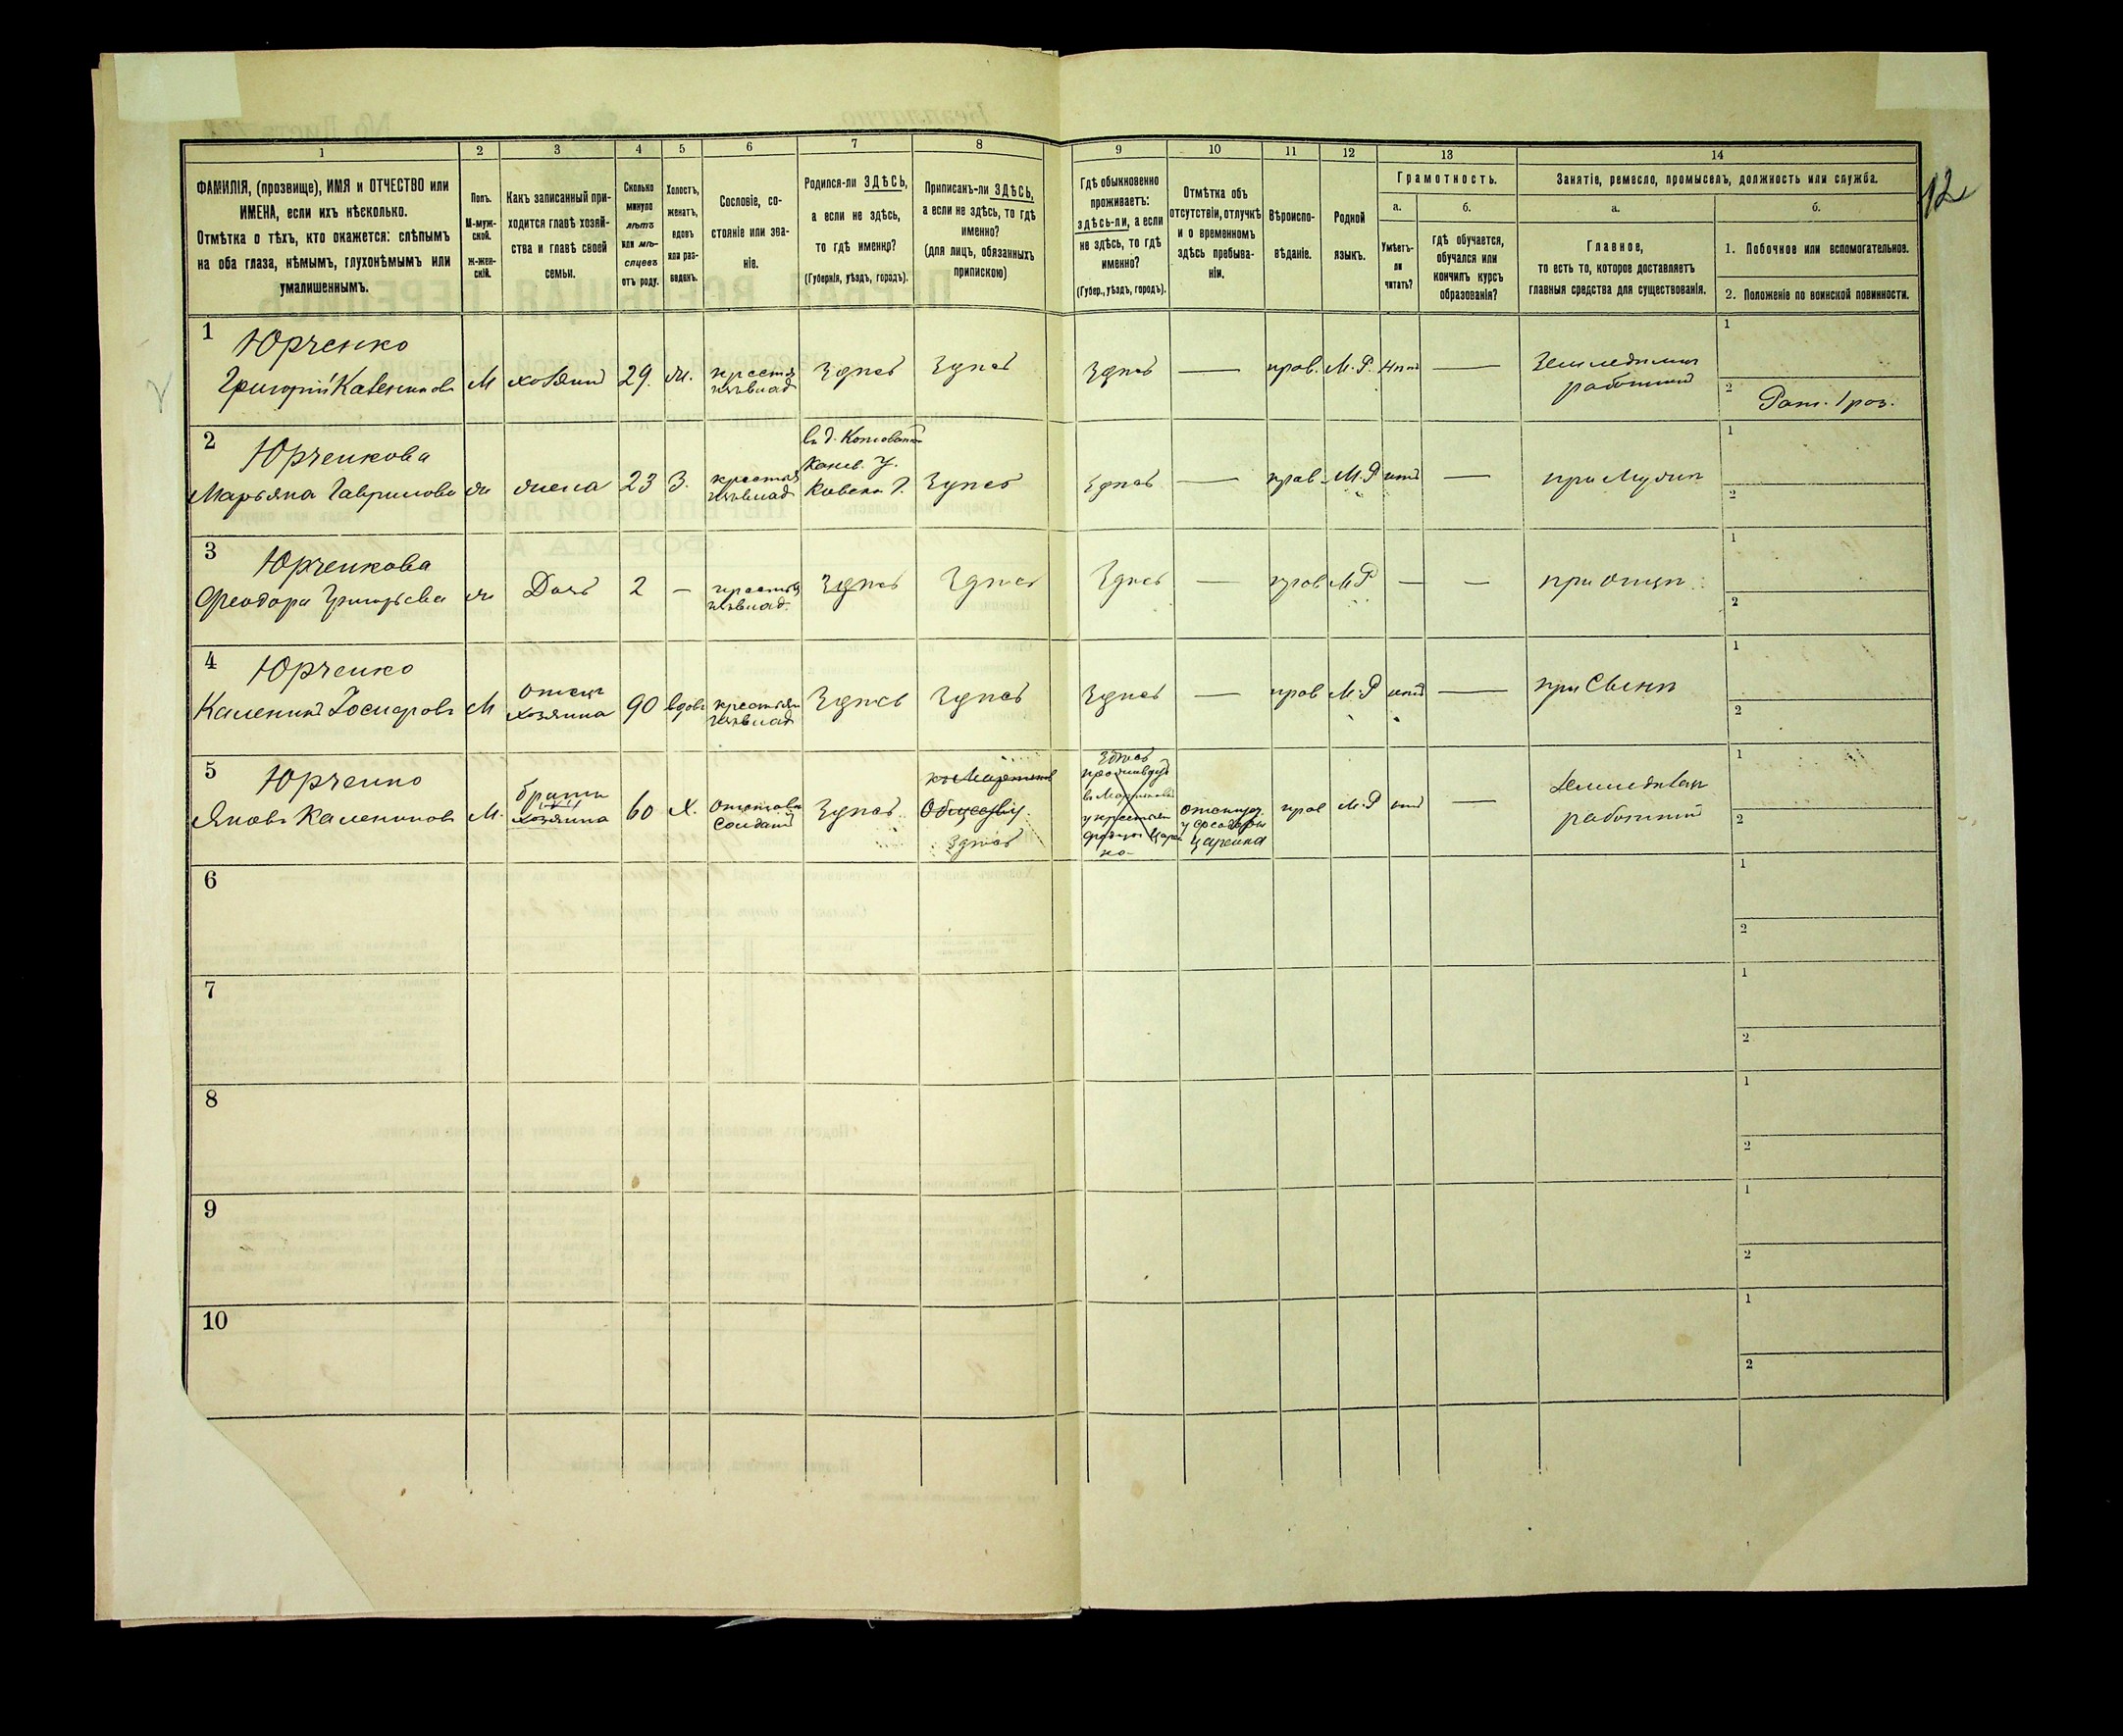 12
1
2
3
4
5
6
7
8
9
10
11
12
13
14
ФАМИЛІЯ, (прозвище), ИМЯ и ОТЧЕСТВО или
ИМЕНА, если ихъ нѣсколько.
Отмѣтка о тѣхъ, кто окажется: слѣпымъ
на оба глаза, нѣмымъ, глухонѣмымъ или
умалишеннымъ.
Полъ.
М-муж-
ской.
ж-жен-
скій.
Какъ записанный при-
ходится главѣ хозяй-
ства и главѣ своей
семьи.
Сколько
минуло
лѣтъ
или мѣ-
сяцевъ
отъ роду.
Холостъ,
женатъ,
вдовъ
или раз-
веденъ.
Сословіе, со-
стояніе или зва-
ніе.
Родился-ли ЗДѢСЬ,
а если не здѣсь,
то гдѣ именно?
(Губернія, уѣздъ, городъ).
Приписанъ-ли ЗДѢСЬ,
а если не здѣсь, то гдѣ
именно?
(для лицъ, обязанныхъ
припискою)
Гдѣ обыкновенно
проживаетъ:
здѣсь-ли, а если
не здѣсь, то гдѣ
именно?
(Губер., уѣздъ, городъ).
Отмѣтка объ
отсутствіи, отлучкѣ
и о временномъ
здѣсь пребыва-
ніи.
Вѣроиспо-
вѣданіе.
Родной
языкъ.
Грамотность.
а.
Умѣетъ-
ли
читать?
б.
гдѣ обучается,
обучался или
кончилъ курсъ
образованія?
Занятіе, ремесло, промыселъ, должность или служба.
а.
Главное,
то есть то, которое доставляетъ
главныя средства для существованія.
б.
1. Побочное или вспомогательное.
2. Положеніе по воинской повинности.
1
Юрченко
Григорій Калениковъ
М
хозяинъ
29.
ж.
Здѣсь
Здѣсь
Здѣсь
—
прав.
М. Р.
нѣтъ
—
работникъ
1
2
Рат. 1 раз.
2
Юрченкова
Марьяна Гаврилова
ж
жена
23
З.
Здѣсь
Здѣсь
—
прав.
М. Р
нѣтъ
—
при Мужѣ
1
2
3
Юрченкова
Феодора Григорьева
ж
Дочь
2
—
Здѣсь
Здѣсь
Здѣсь
—
прав
М Р
—
—
при отцѣ
1
2
4
Юрченко
Каленикъ
М
отецъ
хозяина
90
вдовъ
Здѣсь
Здѣсь
Здѣсь
—
прав
М. Р
нѣтъ
—
при Сынѣ
1
2
5
Юрченко
Яковъ Калениковъ
М.
братъ
хозяина
60
Х.
Здѣсь
Обществу
Здѣсь
Здѣсь
прав
М. Р
нѣтъ
—
работникъ
1
2
6
1
2
7
1
2
8
1
2
9
1
2
10
1
2